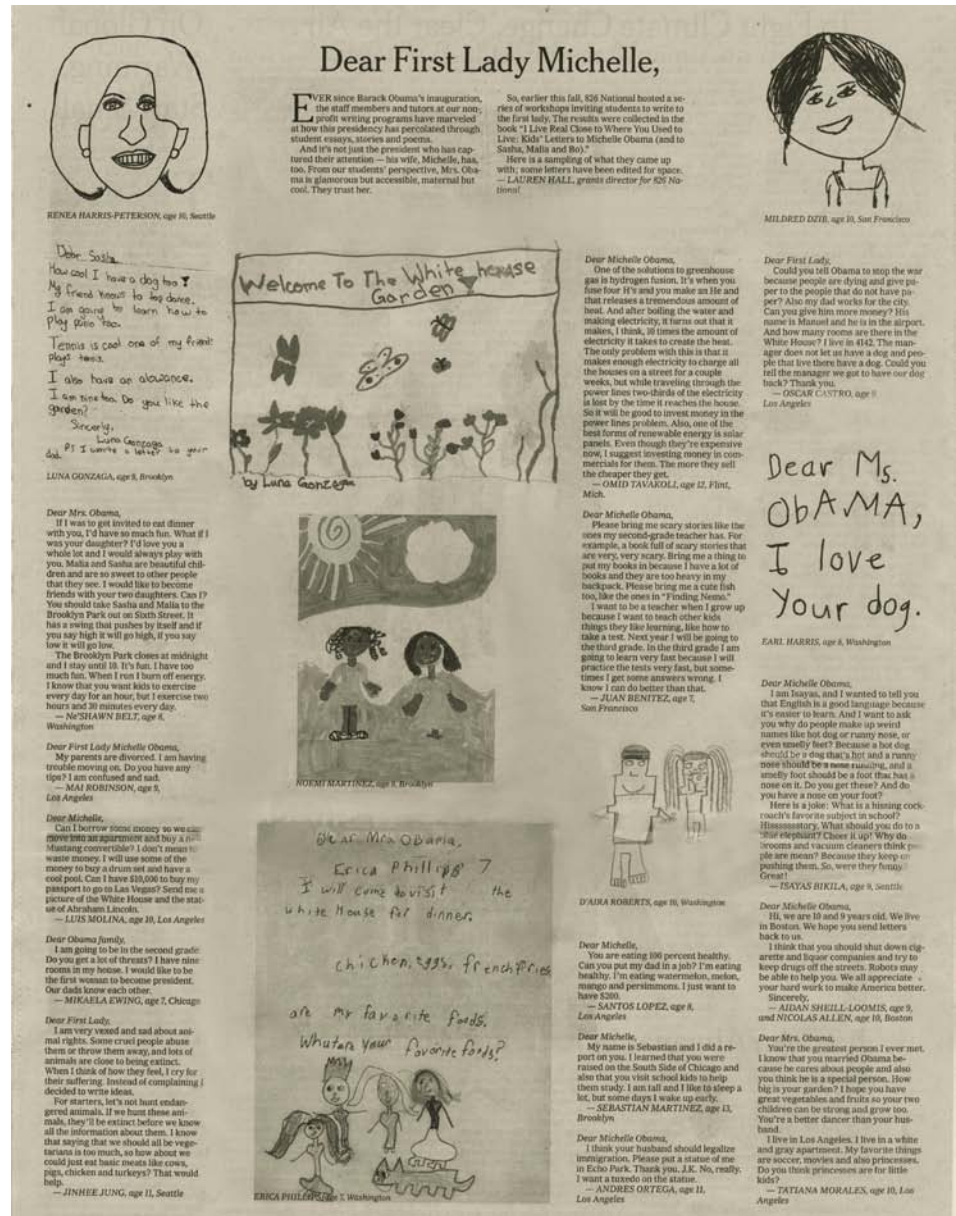 Dear First Lady Michelle,
EVER since Barack Obama's inauguration,
the staff members and tutors at our non-
profit writing programs have marveled
at how this presidency has percolated through
student essays, stories and poems.
And it's not just the president who has cap-
tured their attention — his wife, Michelle, has,
too. From our students' perspective, Mrs. Oba-
ma is glamorous but accessible, maternal but
cool. They trust her.
So, earlier this fall, 826 National hosted a se-
ries of workshops inviting students to write to
the first lady. The results were collected in the
book "I Live Real Close to Where You Used to
Live: Kids' Letters to Michelle Obama (and to
Sasha, Malia and Bo)."
Here is a sampling of what they came up
with; some letters have been edited for space.
— LAUREN HALL, grants director for 826 Na-
tional
RENEA HARRIS-PETERSON, age 10, Seattle
MILDRED DZIB, age 10, San Francisco
Dear Sasha
How cool I have a dog too
My friend knows to tap dance.
I am going to learn how to
Play pano too.
Tennis is cool one of my friend
plays tenis.
I also have an alowance.
I am nine too. Do you like the
garden?
Sincerly,
Luna Gonzaga
PS I wrote a letter to your
dad.
LUNA GONZAGA, age 9, Brooklyn
Dear Mrs. Obama,
If I was to get invited to eat dinner
with you, I'd have so much fun. What if I
was your daughter? I'd love you a
whole lot and I would always play with
you. Malia and Sasha are beautiful chil-
dren and are so sweet to other people
that they see. I would like to become
friends with your two daughters. Can I?
You should take Sasha and Malia to the
Brooklyn Park out on Sixth Street. It
has a swing that pushes by itself and if
you say high it will go high, if you say
low it will go low.
The Brooklyn Park closes at midnight
and I stay until 10. It's fun. I have too
much fun. When I run I burn off energy.
I know that you want kids to exercise
every day for an hour, but I exercise two
hours and 30 minutes every day.
— Ne'SHAWN BELT, age 8,
Washington
Dear First Lady Michelle Obama,
My parents are divorced. I am having
trouble moving on. Do you have any
tips? I am confused and sad.
— MAI ROBINSON, age 9,
Los Angeles
Dear Michelle,
Can I borrow some money so we can
move into an apartment and buy a
Mustang convertible? I don't mean to
waste money. I will use some of the
money to buy a drum set and have a
cool pool. Can I have $10,000 to buy my
passport to go to Las Vegas? Send me a
picture of the White House and the stat-
ue of Abraham Lincoln.
— LUIS MOLINA, age 10, Los Angeles
Dear Obama family,
I am going to be in the second grade.
Do you get a lot of threats? I have nine
rooms in my house. I would like to be
the first woman to become president.
Our dads know each other.
— MIKAELA EWING, age 7, Chicago
Dear First Lady,
I am very vexed and sad about ani-
mal rights. Some cruel people abuse
them or throw them away, and lots of
animals are close to being extinct.
When I think of how they feel, I cry for
their suffering. Instead of complaining I
decided to write ideas.
For starters, let's not hunt endan-
gered animals. If we hunt these ani-
mals, they'll be extinct before we know
all the information about them. I know
that saying that we should all be vege-
tarians is too much, so how about we
could just eat basic meats like cows,
pigs, chicken and turkeys? That would
help.
— JINHEE JUNG, age 11, Seattle
Welcome To The White house
Garden
by Luna Gonzaga
NOEMI MARTINEZ, age 9, Brooklyn
Dear Mrs. Obama,
Erica Phillips 7
I will come to visit the
white House for dinner.
chicken, eggs, french fries
are my favorite foods.
favorite foods?
ERICA PHILLIPS, age 7, Washington
Dear Michelle Obama,
One of the solutions to greenhouse
gas is hydrogen fusion. It's when you
fuse four H's and you make an He and
that releases a tremendous amount of
heat. And after boiling the water and
making electricity, it turns out that it
makes, I think, 10 times the amount of
electricity it takes to create the heat.
The only problem with this is that it
makes enough electricity to charge all
the houses on a street for a couple
weeks, but while traveling through the
power lines two-thirds of the electricity
is lost by the time it reaches the house.
So it will be good to invest money in the
power lines problem. Also, one of the
best forms of renewable energy is solar
panels. Even though they're expensive
now, I suggest investing money in com-
mercials for them. The more they sell
the cheaper they get.
— OMID TAVAKOLI, age 12, Flint,
Mich.
Dear Michelle Obama,
Please bring me scary stories like the
ones my second-grade teacher has. For
example, a book full of scary stories that
are very, very scary. Bring me a thing to
put my books in because I have a lot of
books and they are too heavy in my
backpack. Please bring me a cute fish
too, like the ones in "Finding Nemo."
I want to be a teacher when I grow up
because I want to teach other kids
things they like learning, like how to
take a test. Next year I will be going to
the third grade. In the third grade I am
going to learn very fast because I will
practice the tests very fast, but some-
times I get some answers wrong. I
know I can do better than that.
— JUAN BENITEZ, age 7,
San Francisco
D'AIRA ROBERTS, age 10, Washington
Dear Michelle,
You are eating 100 percent healthy.
Can you put my dad in a job? I'm eating
healthy. I'm eating watermelon, melon,
mango and persimmons. I just want to
have $200.
— SANTOS LOPEZ, age 8,
Los Angeles
Dear Michelle,
My name is Sebastian and I did a re-
port on you. I learned that you were
raised on the South Side of Chicago and
also that you visit school kids to help
them study. I am tall and I like to sleep a
lot, but some days I wake up early.
— SEBASTIAN MARTINEZ, age 13,
Brooklyn
Dear Michelle Obama,
I think your husband should legalize
immigration. Please put a statue of me
in Echo Park. Thank you. J.K. No, really.
I want a tuxedo on the statue.
— ANDRES ORTEGA, age 11,
Los Angeles
Dear First Lady,
Could you tell Obama to stop the war
because people are dying and give pa-
per to the people that do not have pa-
per? Also my dad works for the city.
Can you give him more money? His
name is Manuel and he is in the airport.
And how many rooms are there in the
White House? I live in 4142. The man-
ager does not let us have a dog and peo-
ple that live there have a dog. Could you
tell the manager we got to have our dog
back? Thank you.
— OSCAR CASTRO, age 9
Los Angeles
Dear Ms.
ObAMA,
I love
Your dog.
EARL HARRIS, age 8, Washington
Dear Michelle Obama,
I am Isayas, and I wanted to tell you
that English is a good language because
it's easier to learn. And I want to ask
you why do people make up weird
names like hot dog or runny nose, or
even smelly feet? Because a hot dog
should be a dog that's hot and a runny
nose should be a nose running, and a
smelly foot should be a foot that has a
nose on it. Do you get these? And do
you have a nose on your foot?
Here is a joke: What is a hissing cock-
roach's favorite subject in school?
Hissssssstory. What should you do to a
blue elephant? Cheer it up! Why do
brooms and vacuum cleaners think peo-
ple are mean? Because they keep on
pushing them. So, were they funny?
Great!
— ISAYAS BIKILA, age 9, Seattle
Dear Michelle Obama,
Hi, we are 10 and 9 years old. We live
in Boston. We hope you send letters
back to us.
I think that you should shut down cig-
arette and liquor companies and try to
keep drugs off the streets. Robots may
be able to help you. We all appreciate
your hard work to make America better.
Sincerely,
— AIDAN SHEILL-LOOMIS, age 9,
and NICOLAS ALLEN, age 10, Boston
Dear Mrs. Obama,
You're the greatest person I ever met.
I know that you married Obama be-
cause he cares about people and also
you think he is a special person. How
big is your garden? I hope you have
great vegetables and fruits so your two
children can be strong and grow too.
You're a better dancer than your hus-
band.
I live in Los Angeles. I live in a white
and gray apartment. My favorite things
are soccer, movies and also princesses.
Do you think princesses are for little
kids?
— TATIANA MORALES, age 10, Los
Angeles